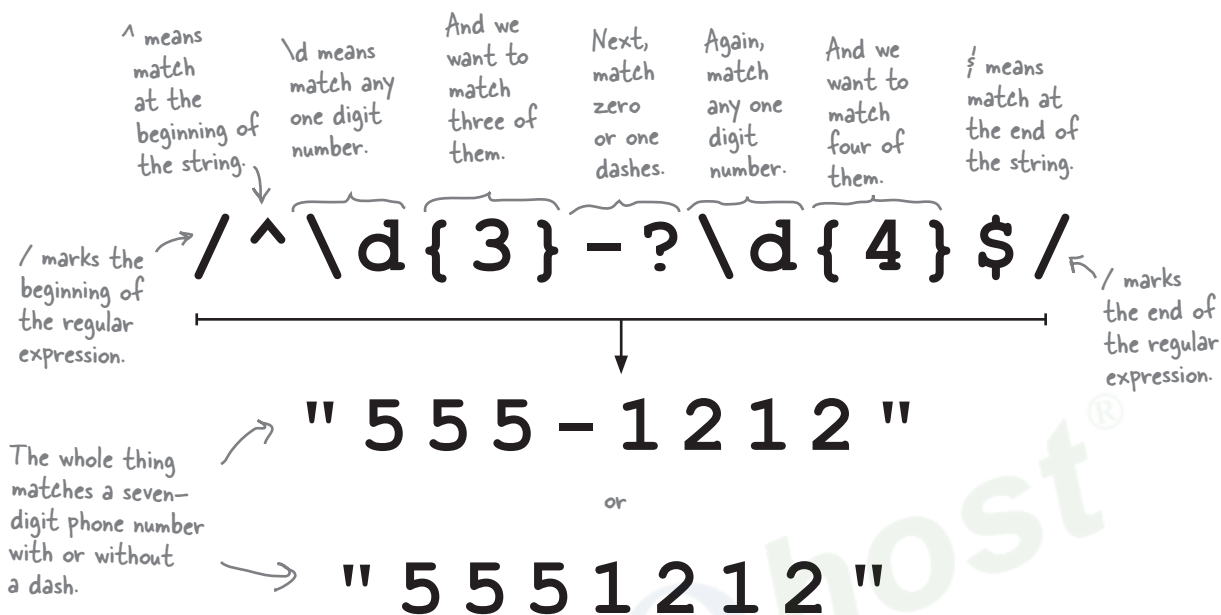 ^ means
match
at the
beginning of
the string.
\d means
match any
one digit
number.
And we
want to
match
three of
them.
Next,
match
zero
or one
dashes.
Again,
match
any one
digit
number.
And we
want to
match
four of
them.
$ means
match at
the end of
the string.
/^\d{3}-?\d{4}$/
/ marks the
beginning of
the regular
expression.
/ marks
the end of
the regular
expression.
"555-1212"
The whole thing
matches a seven-
digit phone number
with or without
a dash.
or
"5551212"
host®